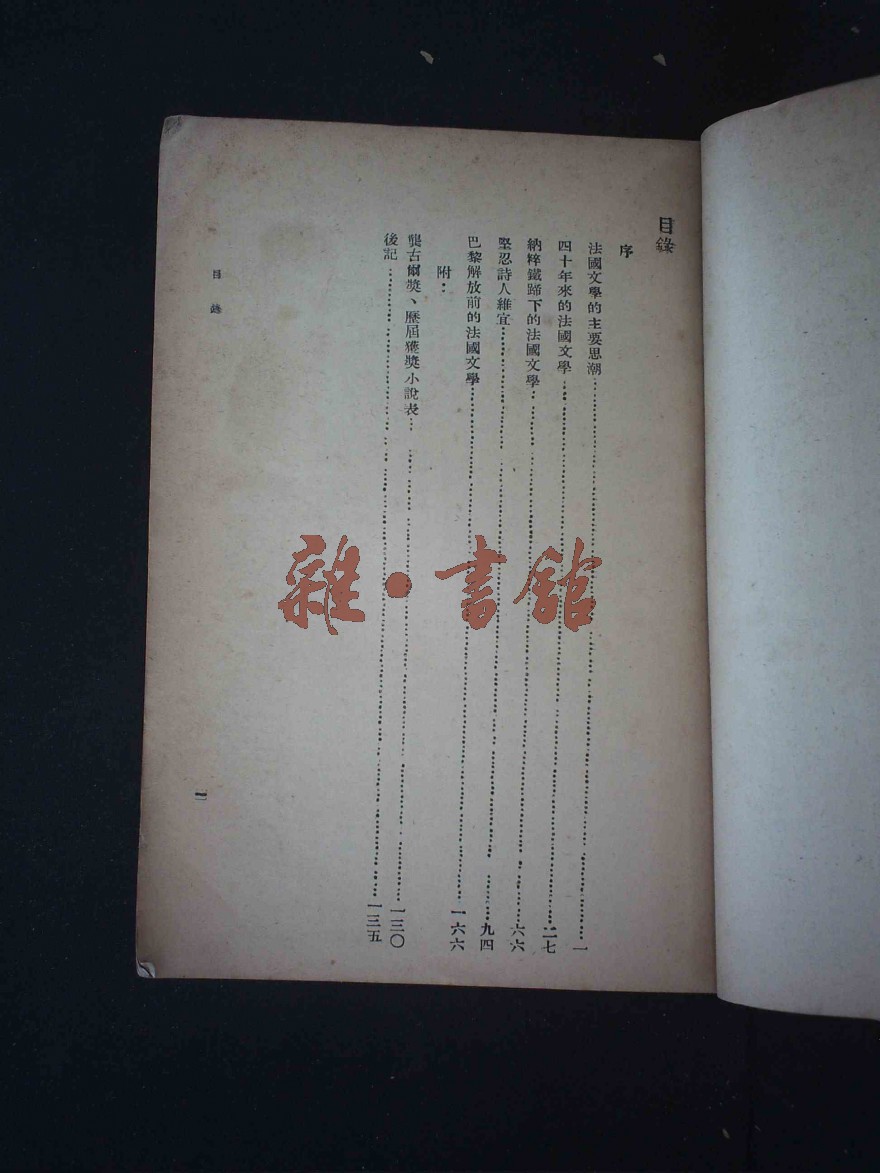 目錄
序
法國文學的主要思潮……一
四十年來的法國文學……二七
納粹鐵蹄下的法國文學……六六
堅忍詩人維宜……九四
巴黎解放前的法國文學……一六六
附：
龔古爾獎、歷屆獲獎小說表……一三〇
後記……一三五
目錄
一
雜·書館